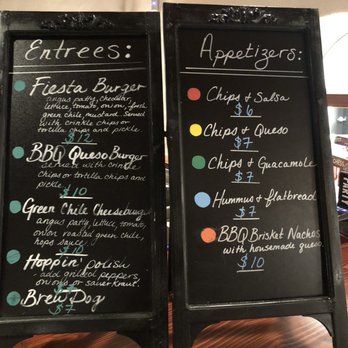 Entrees:
Fiesta Burger
angus patty, cheddar,
lettuce, tomato, onion, fresh
green chile mustard. Served
with crinkle chips or
tortilla chips and pickle
$12
BBQ Queso Burger
served with crinkle
chips or tortilla chips and
pickle
$10
Green Chile Cheeseburger
angus patty, lettuce, tomato,
onion roasted green chile,
hops sauce
$10
Hoppin'
- add grilled peppers,
onions or sauerkraut.
Brew Dog
$7
Appetizers:
Chips & Salsa
$6
Chips & Queso
$7
Chips & Guacamole
$7
Hummus & flatbread
$7
BBQ Brisket Nachos
with housemade queso
$10